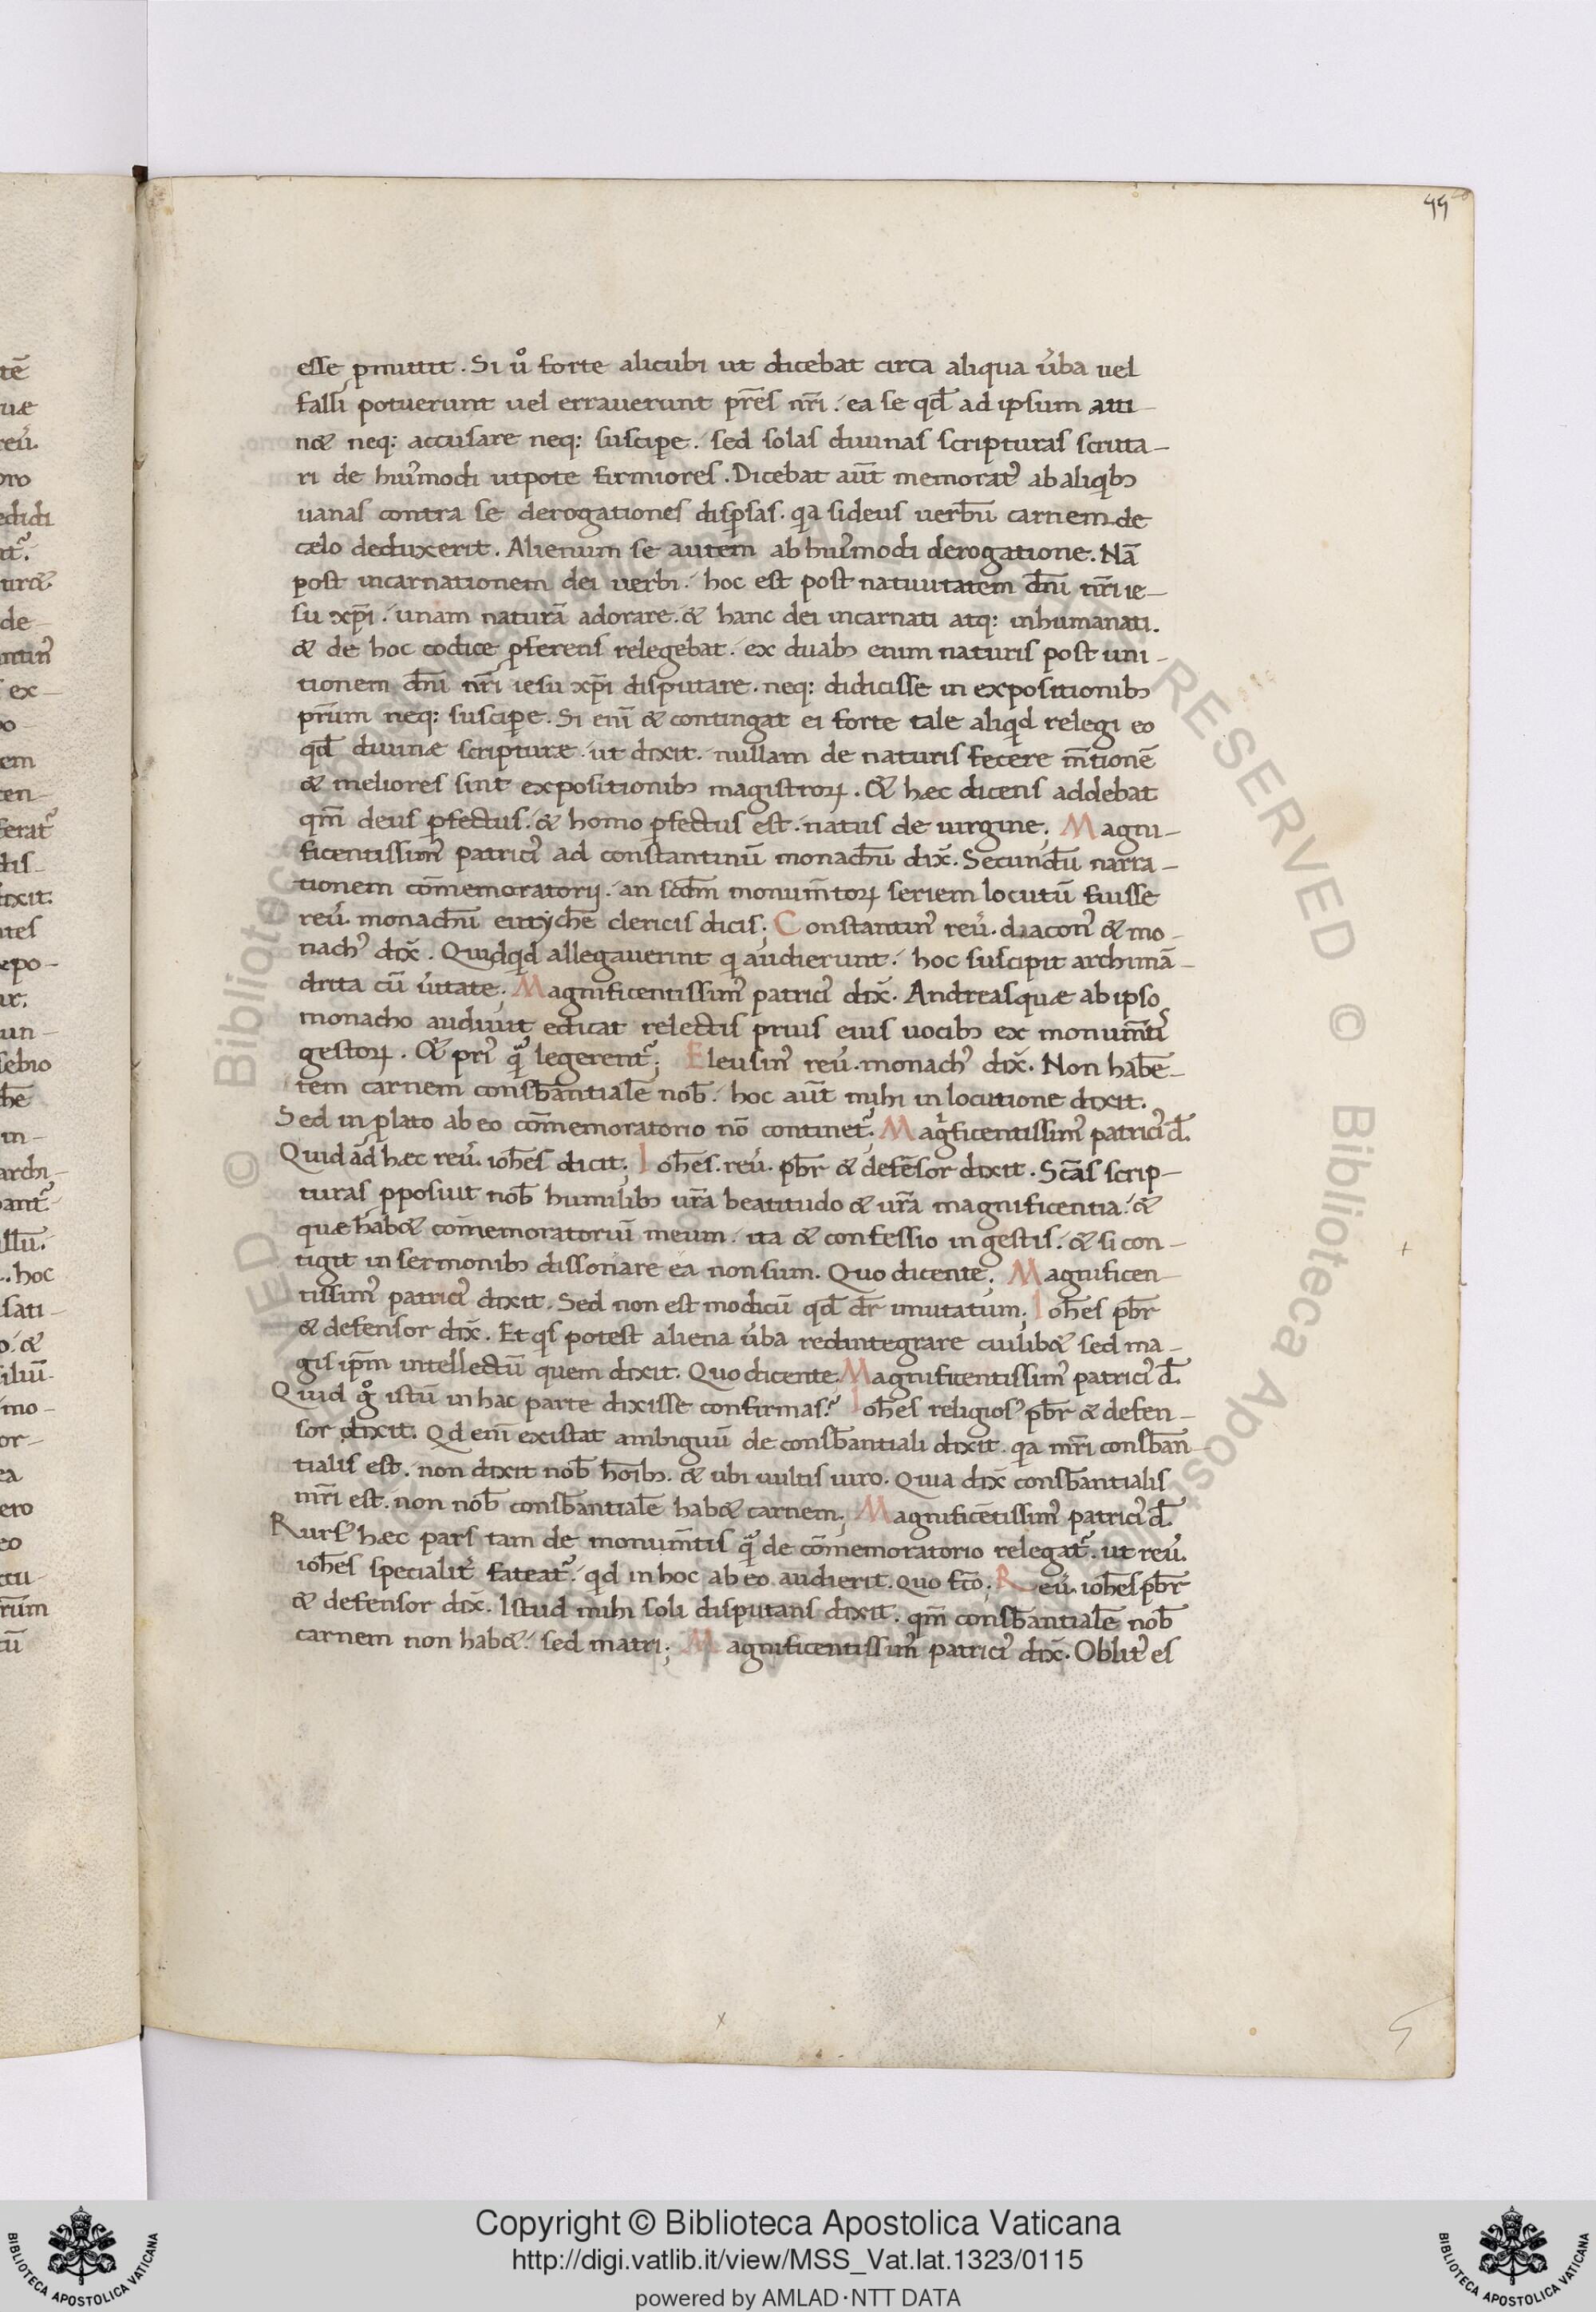 99
esse ꝑmittit. Si ůo forte alicubi ut dicebat circa aliqua ůba uel
falli potuerunt uel errauerunt pr̄es nr̄i. ea se qd̄ ad ipsum atti-
n& neq: accusare neq: suscipe. sed solas diuinas scripturas scruta-
ri de hui᾽modi utpote firmiores. Dicebat aūt memorat᾽ ab aliqb;
uanas contra se derogationes dispersas. qa si deus uerbū carnem de
cælo deduxerit. Alienum se autem ab hui᾽modi derogatione. Nā
post incarnationem dei uerbi. hoc est post natiuitatem dn̄i nr̄i ie-
su xp̄i. unam naturā adorare. & hanc dei incarnati atq: inhumanati.
& de hoc codice pferens relegebat. ex duab; enim naturis post uni-
tionem dn̄i nr̄i iesu xp̄i disputare. neq: didicisse in expositionib;
pr̄um neq: suscipe. Si eni & contingat ei forte tale aliqd relegi eo
qd̄ diuinæ scripturæ. ut dixit. nullam de naturis fecere m̄tionē
& meliores sint expositionib; magistroꝝ. & hæc dicens addebat
qm̄ deus pfectus. & homo pfectus est. natus de uirgine; Magni-
ficentissim᾽ patrici᾽ ad constantinū monachū dix̄. Secundū narra-
tionem cōmemoratorij. an scdm̄ monum̄toꝝ seriem locutū fuisse
reu᾽. monachū eutychē clericis dicis; Constantin᾽ reu᾽. diacon᾽ & mo-
nach᾽ dix̄. Quidqid allegauerint q audierunt. hoc suscipit archimā-
drita cū ůitate; Magnificentissim᾽ patrici᾽ dix̄. Andreas quæ ab ipso
monacho audiuit edicat relectis prius eius uocib; ex monum̄tis
gestoꝝ. & pri᾽ qa᾽ legerent᾽; Eleusin᾽ reu᾽. monach᾽ dix̄. Non habē-
tem carnem consb̄antialē nob̄. hoc aūt mihi in locutione dixit.
Sed in plato ab eo cōmemoratorio nō continet᾽; Magnficentissim᾽ patrici᾽ d̄.
Quid ad hæc reu᾽. ioh̄es dicit; Ioh̄es. reu᾽. pbr̄ & defēsor dixit. Scās scrip-
turas pposuit nob̄ humilib; ur̄a beatitudo & ur̄a magnificentia. &
quæ hab& com̄emoratoriū meum. ita & confessio in gestis. & si con-
tigit in sermonib; dissonare ea non sum. Quo dicente. Magnificen-
tissim᾽ patrici᾽ dixit. Sed non est modicū qd̄ dr̄ imutatum; Ioh̄es pbr̄
& defensor dix̄. Et qs potest aliena ůba redintegrare cuilib& sed ma-
gis ipm̄ intellectū quem dixit. Quo dicente. Magnificentissim᾽ patrici᾽ d̄.
Quid go istū in hac parte dixisse confirmas? Ioh̄es religios᾽ pbr̄ & defen-
sor dixit. Qd eni existat ambiguū de consb̄antiali dixit. qa mr̄i consb̄an-
tialis est. non dixit nob̄ hoīb;. & ubi uultis iuro. quia dix̄ consb̄antialis
mr̄i est. non nob̄ consb̄antialē hab& carnem; Magnificētissim᾽ patrici᾽ d̄.
Rurs᾽ hæc pars tam de monum̄tis qa᾽ de cōmemoratorio relegat᾽. ut reu᾽.
ioh̄es specialit᾽ fateat᾽. qd in hoc ab eo audierit. quo fc̄o; Reu᾽. ioh̄es pbr̄
& defensor dix̄. Istud mihi soli disputans dixit. qm̄ consb̄antialē nob̄
carnem non hab&. sed matri; Magnificentissim᾽ patrici᾽ dix̄. Oblit᾽ es
Copyright © Biblioteca Apostolica Vaticana
http://digi.vatlib.it/view/MSS_Vat.lat.1323/0115
powered by AMLAD·NTT DATA